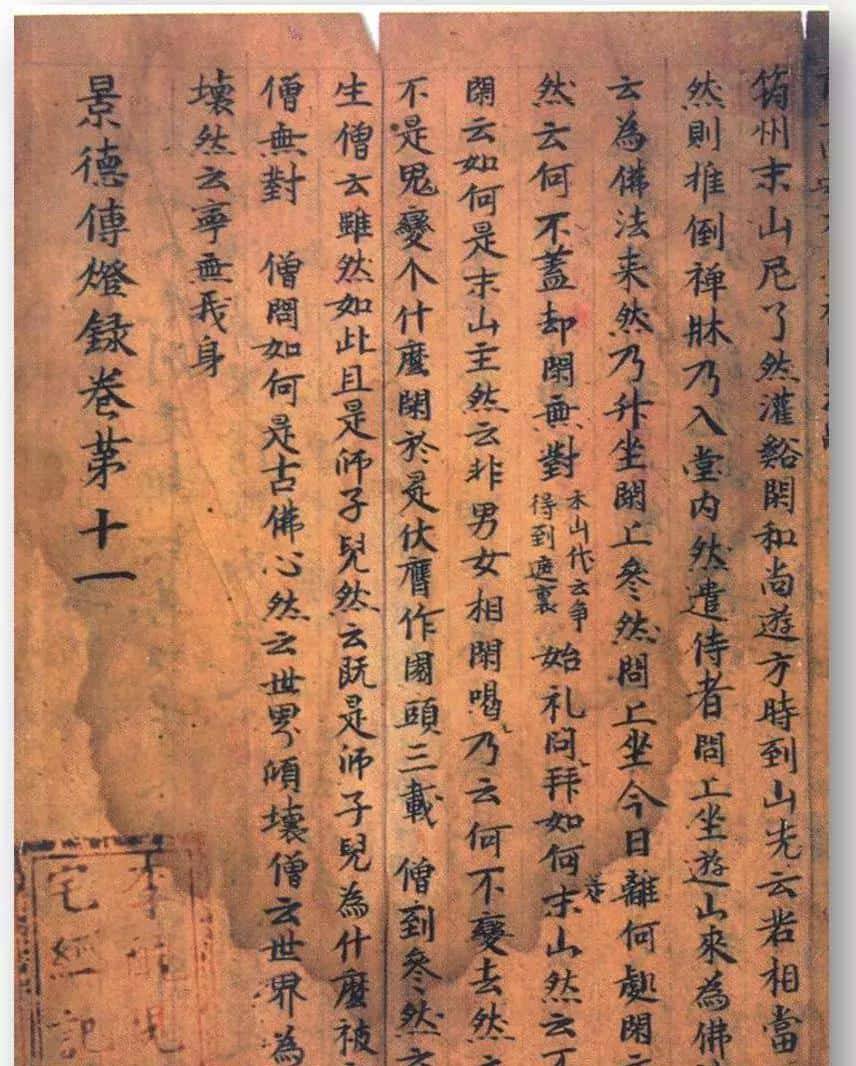 筠州末山尼了然灌谿閑和尚遊方時到山先云若相當
然則推倒禅牀乃入堂内然遣侍者問上坐遊山來為佛
云為佛法来然乃升坐閑上參然問上坐今日離何處閑
然云何不蓋却閑無對
末山代云争
得到遮裏
始礼問拜如何末山然云
閑云如何是末山主然云非男女相閑喝乃云何不變去然
不是鬼變个什麼閑於是伏膺作園頭三載 僧到參然
生僧云雖然如此且是师子兒然云既是师子兒為什麼被
僧無對 僧問如何是古佛心然云世界傾壞僧云世界為
壞然云寧無我身
景德傳燈録卷第十一
李 兒
宅經記